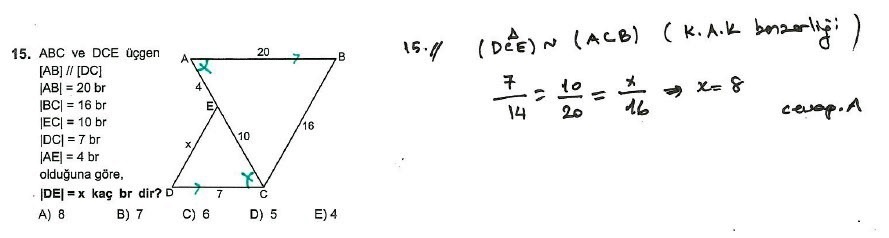 15. ABC ve DCE üçgen
[AB] // [DC]
|AB| = 20 br
|BC| = 16 br
|EC| = 10 br
|DC| = 7 br
|AE| = 4 br
olduğuna göre,
|DE| = x kaç br dir?
A) 8 B) 7 C) 6 D) 5 E) 4
A 20 B
x
4
E
10 16
x
x
D 7 C
15.// (DCE) ~ (ACB) (K.A.K benzerliği)
7/14 = 10/20 = x/16 ⇒ x = 8
cevap.A